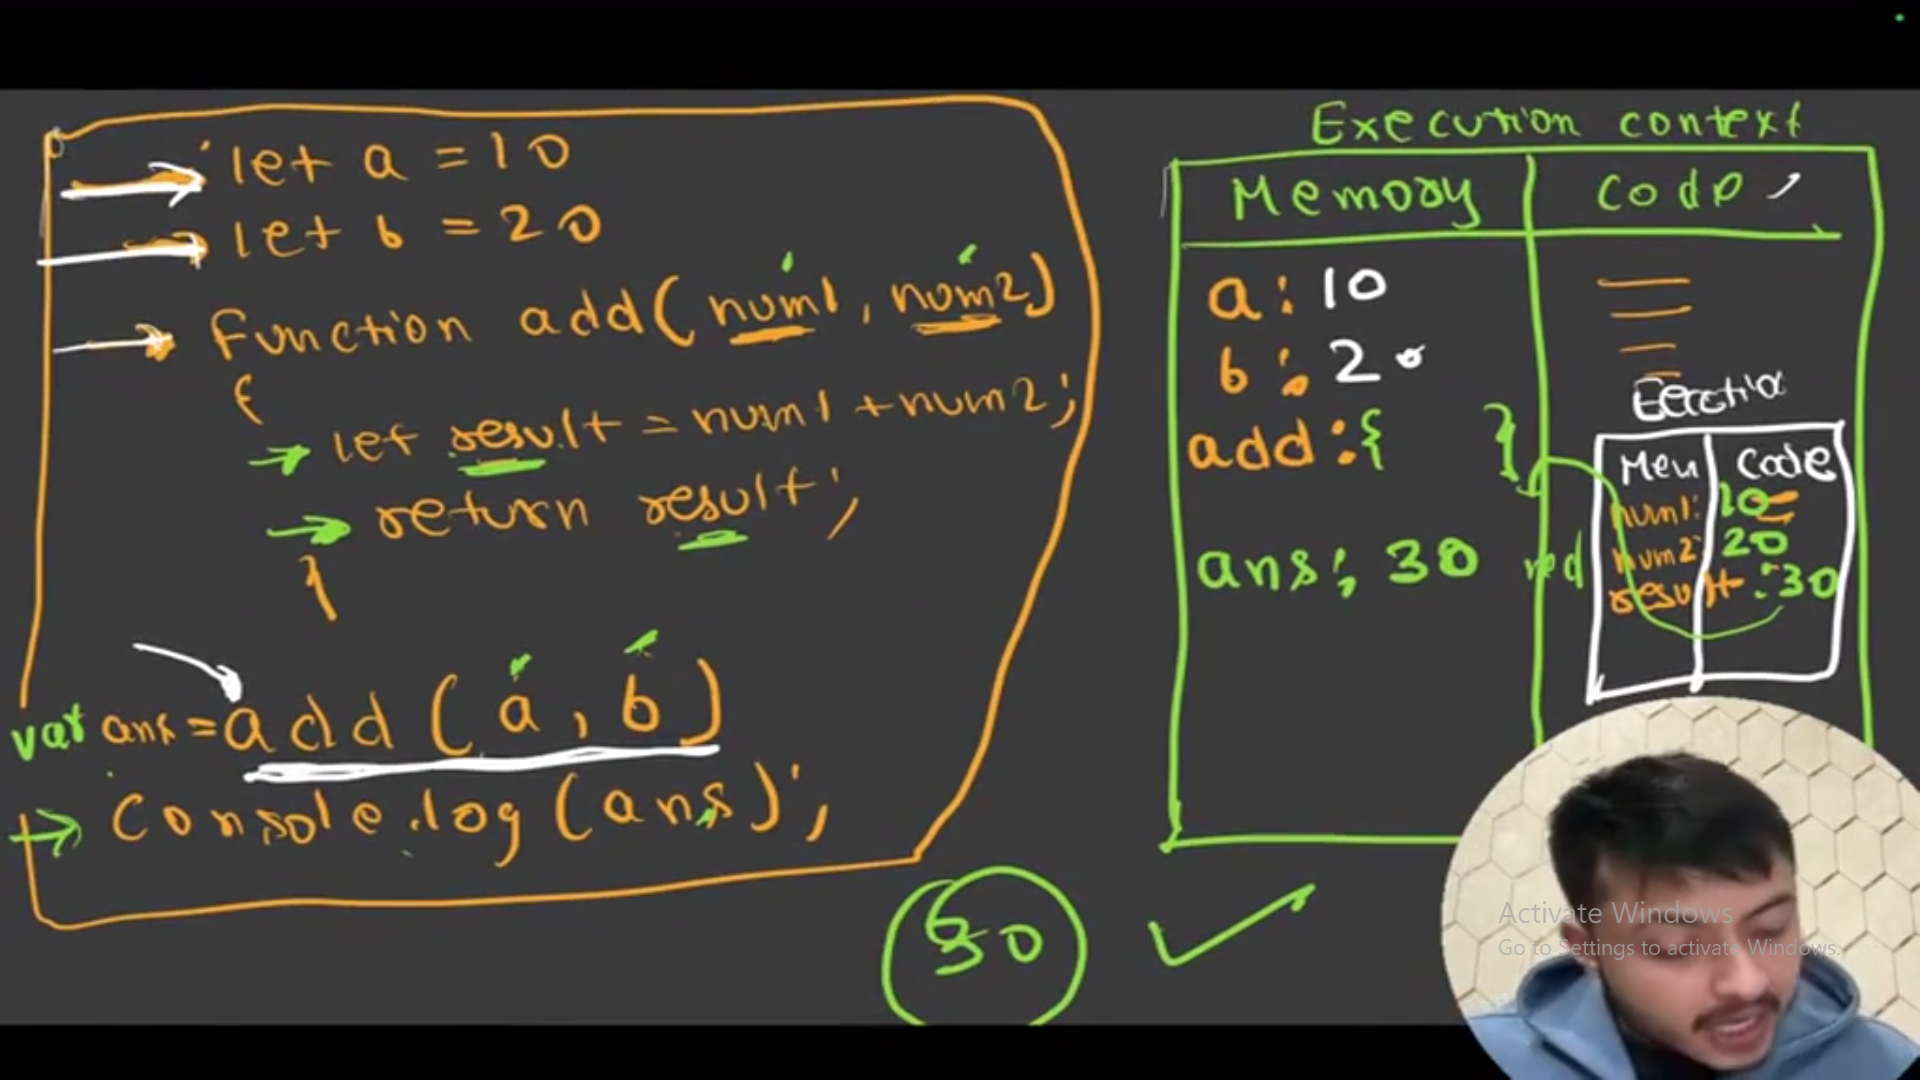 let a = 10
let b = 20
function add( num1 , num2 )
{
let result = num1 + num2 ;
return result ;
}
var ans = add ( a , b )
console.log ( ans ) ;
30
Execution context
Memory Code
a : 10
b : 20
add : { }
ans : 30
Mem Code
num1: 10
num2: 20
result : 30
Activate Windows
Go to Settings to activate Windows.